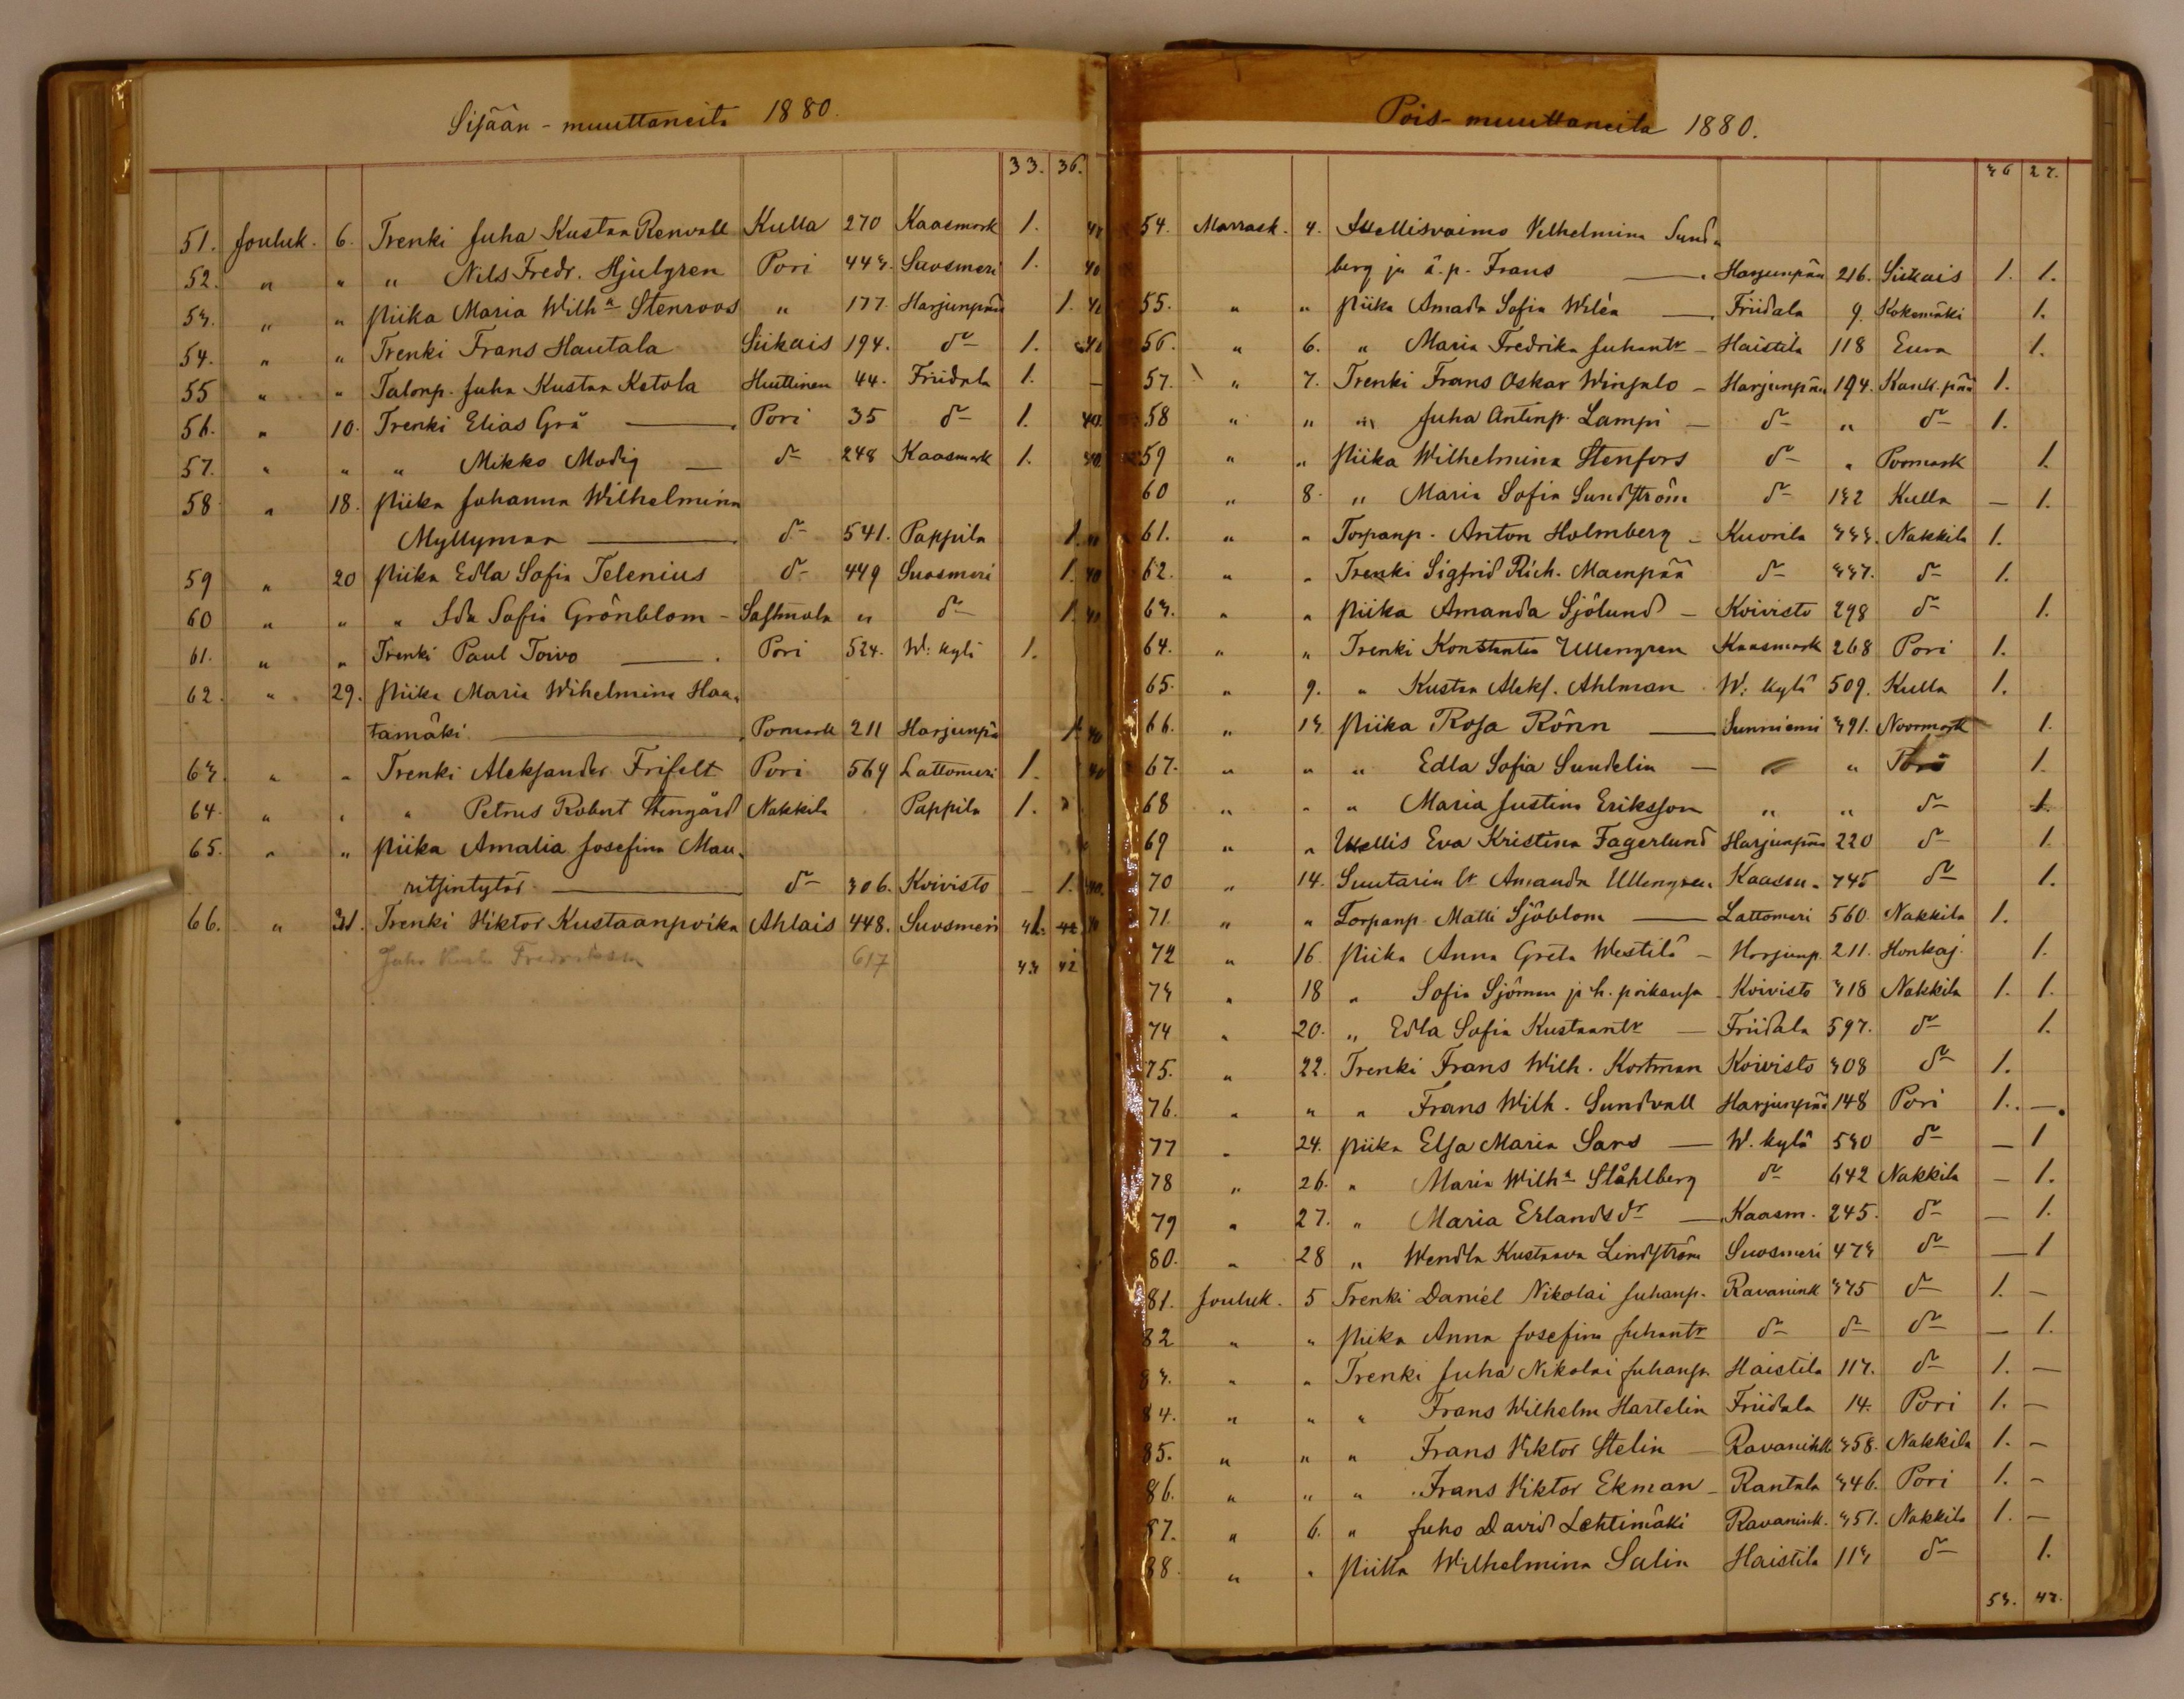 Sisään-muuttaneita 1880.
33. 36.
51. Jouluk. 6. Trenki Juha Kustaa Renvall Kulla 270 Kaasmark 1.
52. " " " Nils Fredr. Hjulgren Pori 443. Suosmeri 1.
53. " " Piika Maria Wilh:a Stenroos " 177. Harjunpää 1.
54. " " Trenki Frans Hautala Siikais 194. d:o 1.
55 " " Talonp. Juha Kustaa Ketola Huittinen 44. Friidala 1.
56. " 10. Trenki Elias Grå — Pori 35 d:o 1.
57. " " " Mikko Modig — d:o 248 Kaasmark 1.
58 " 18. Piika Johanna Wilhelmina
Myllymaa — d:o 541. Pappila 1.
59 " 20 Piika Edla Sofia Telenius d:o 449 Suosmeri 1.
60 " " " Ida Sofia Grönblom - Sastmola " d:o 1.
61. " " Trenki Paul Toivo — Pori 524. W: kylä 1.
62. " 29. Piika Maria Wihelmina Haa-
tamäki — Pomark 211 Harjunpä 1.
63. " " Trenki Aleksander Friselt Pori 569 Lattomeri 1.
64. " " " Petrus Robert Stengård Nakkila Pappila 1.
65. " " Piika Amalia Josefina Mau-
ritsintytär — d:o 306. Koivisto — 1.
66. " 31. Trenki Viktor Kustaanpoika Ahlais 448. Suosmeri
Fredriksson 617 43 42
Pois-muuttaneita 1880.
36 27.
54. Marrask. 4. Itsellisvaimo Vilhelmina Sund-
berg ja ä. p. Frans — Harjunpää 216. Siikais 1. 1.
55. " " Piika Amada Sofia Wilén — Friidala 9. Kokemäki 1.
56. " 6. " Maria Fredrika Juhantr — Haistila 118 Eura 1.
57. " 7. Trenki Frans Oskar Winsalo — Harjunpää 194. Kank.pää 1.
58 " " " Juha Antinp. Lampi — d:o " d:o 1.
59 " " Piika Wilhelmina Stenfors d:o " Pormark 1.
60 " 8. " Maria Sofia Sundström d:o 132 Kulla — 1.
61. " " Torpanp. Anton Holmberg — Kuorila 333. Nakkila 1.
62. " " Trenki Sigfrid Rich. Maenpää d:o 337. d:o 1.
63. " " Piika Amanda Sjölund — Koivisto 298 d:o 1.
64. " " Trenki Konstantin Ullengren Kaasmark 268 Pori 1.
65. " 9. " Kustaa Aleks. Ahlman W: kylä 509. Kulla 1.
66. " 13 Piika Rosa Rönn — Sunniemi 391. Noormark 1.
67. " " " Edla Sofia Sundelin — " " Pori 1.
68 " " " Maria Justina Eriksson " " d:o 1.
69 " " Itsellis Eva Kristina Fagerlund Harjunpää 220 d:o 1.
70 " 14. Suutarin lr Amanda Ullengren Kaasm. 745 d:o 1.
71. " " Torpanp. Matti Sjöblom — Lattomeri 560. Nakkila 1.
72 " 16. Piika Anna Greta Westilä — Harjunp. 211. Honkaj. 1.
73 " 18 " Sofia Sjöman ja h. poikansa Koivisto 318 Nakkila 1. 1.
74 " 20. " Edla Sofia Kustaantr — Friidala 597. d:o 1.
75. " 22. Trenki Frans Wilh. Kortman Koivisto 308 d:o 1.
76. " " " Frans Wilh. Sundvall Harjunpää 148 Pori 1. —
77 " 24. Piika Elsa Maria Sars — W. kylä 530 d:o — 1
78 " 26. " Maria Wilh:a Ståhlberg d:o 642 Nakkila — 1.
79 " 27. " Maria Erlandsdr — Kaasm. 245. d:o — 1.
80. " 28 " Wendla Kustaava Lindström Suosmeri 473 d:o — 1
81. Jouluk. 5 Trenki Daniel Nikolai Juhanp. Ravanink 375 d:o 1. —
82 " " Piika Anna Josefina Juhantr d:o d:o d:o — 1.
83. " " Trenki Juha Nikolai Juhanp. Haistila 113. d:o 1. —
84. " " " Frans Wilhelm Hartelin Friidala 14. Pori 1. —
85. " " " Frans Viktor Stelin — Ravanink 358. Nakkila 1. —
86. " " " Frans Viktor Ekman — Rantala 346. Pori 1. —
87. " 6. " Juho David Lehtimäki Ravanink. 351. Nakkila 1. —
88. " " Piika Wilhelmina Salin Haistila 113 d:o 1.
53. 43.